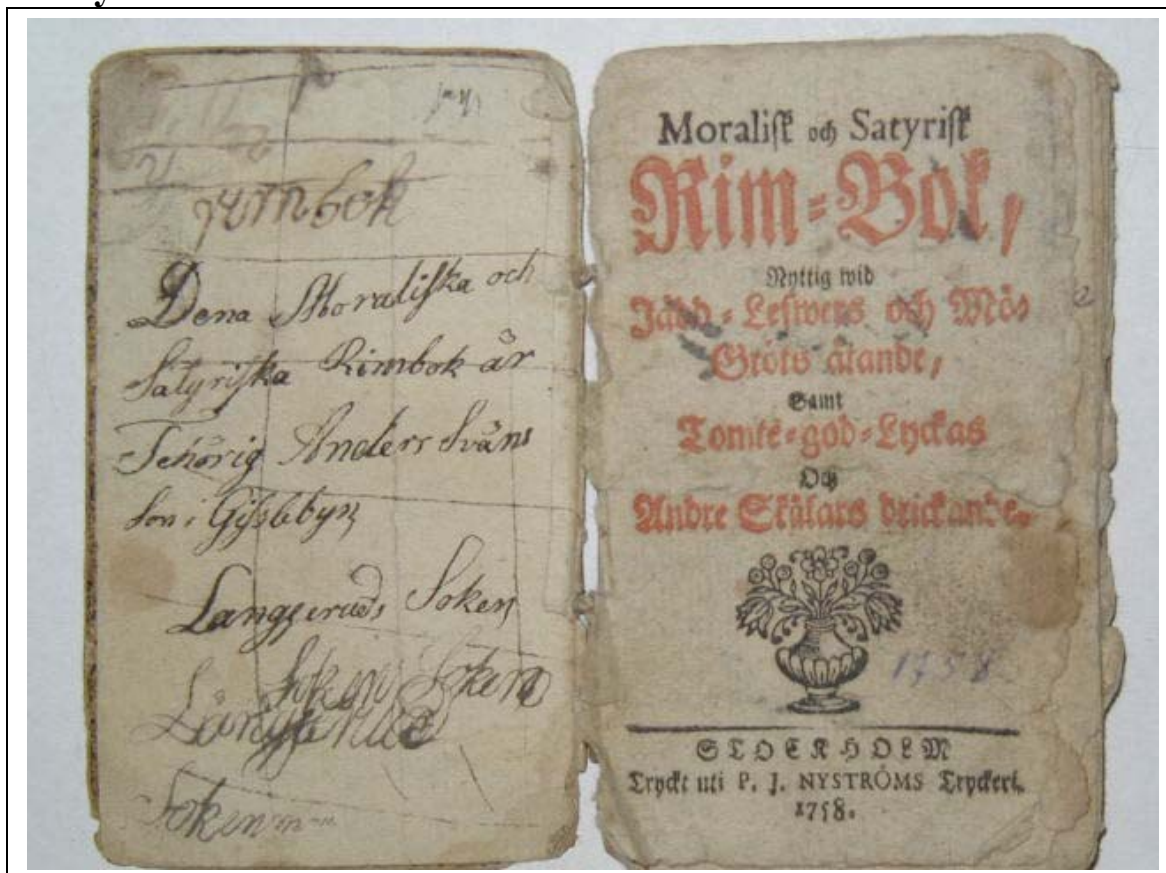 rimbok
Dena Moraliska och
Satyriska Rimbok är
Tehörig Anders Sväns
son i Gisslebyn
Langserudz Soken
Soken Soken
Långserud
Soken
Moraliſk och Satyriſk
Rim-Bok,
Nyttig wid
Jädd-Lefwers och Mös-
Gröts ätande,
Samt
Tomte-god-Lyckas
Och
Andre Skålars drickande.
1758
STOCKHOLM
Tryckt uti P. J. NYSTRÖMS Tryckeri.
1758.